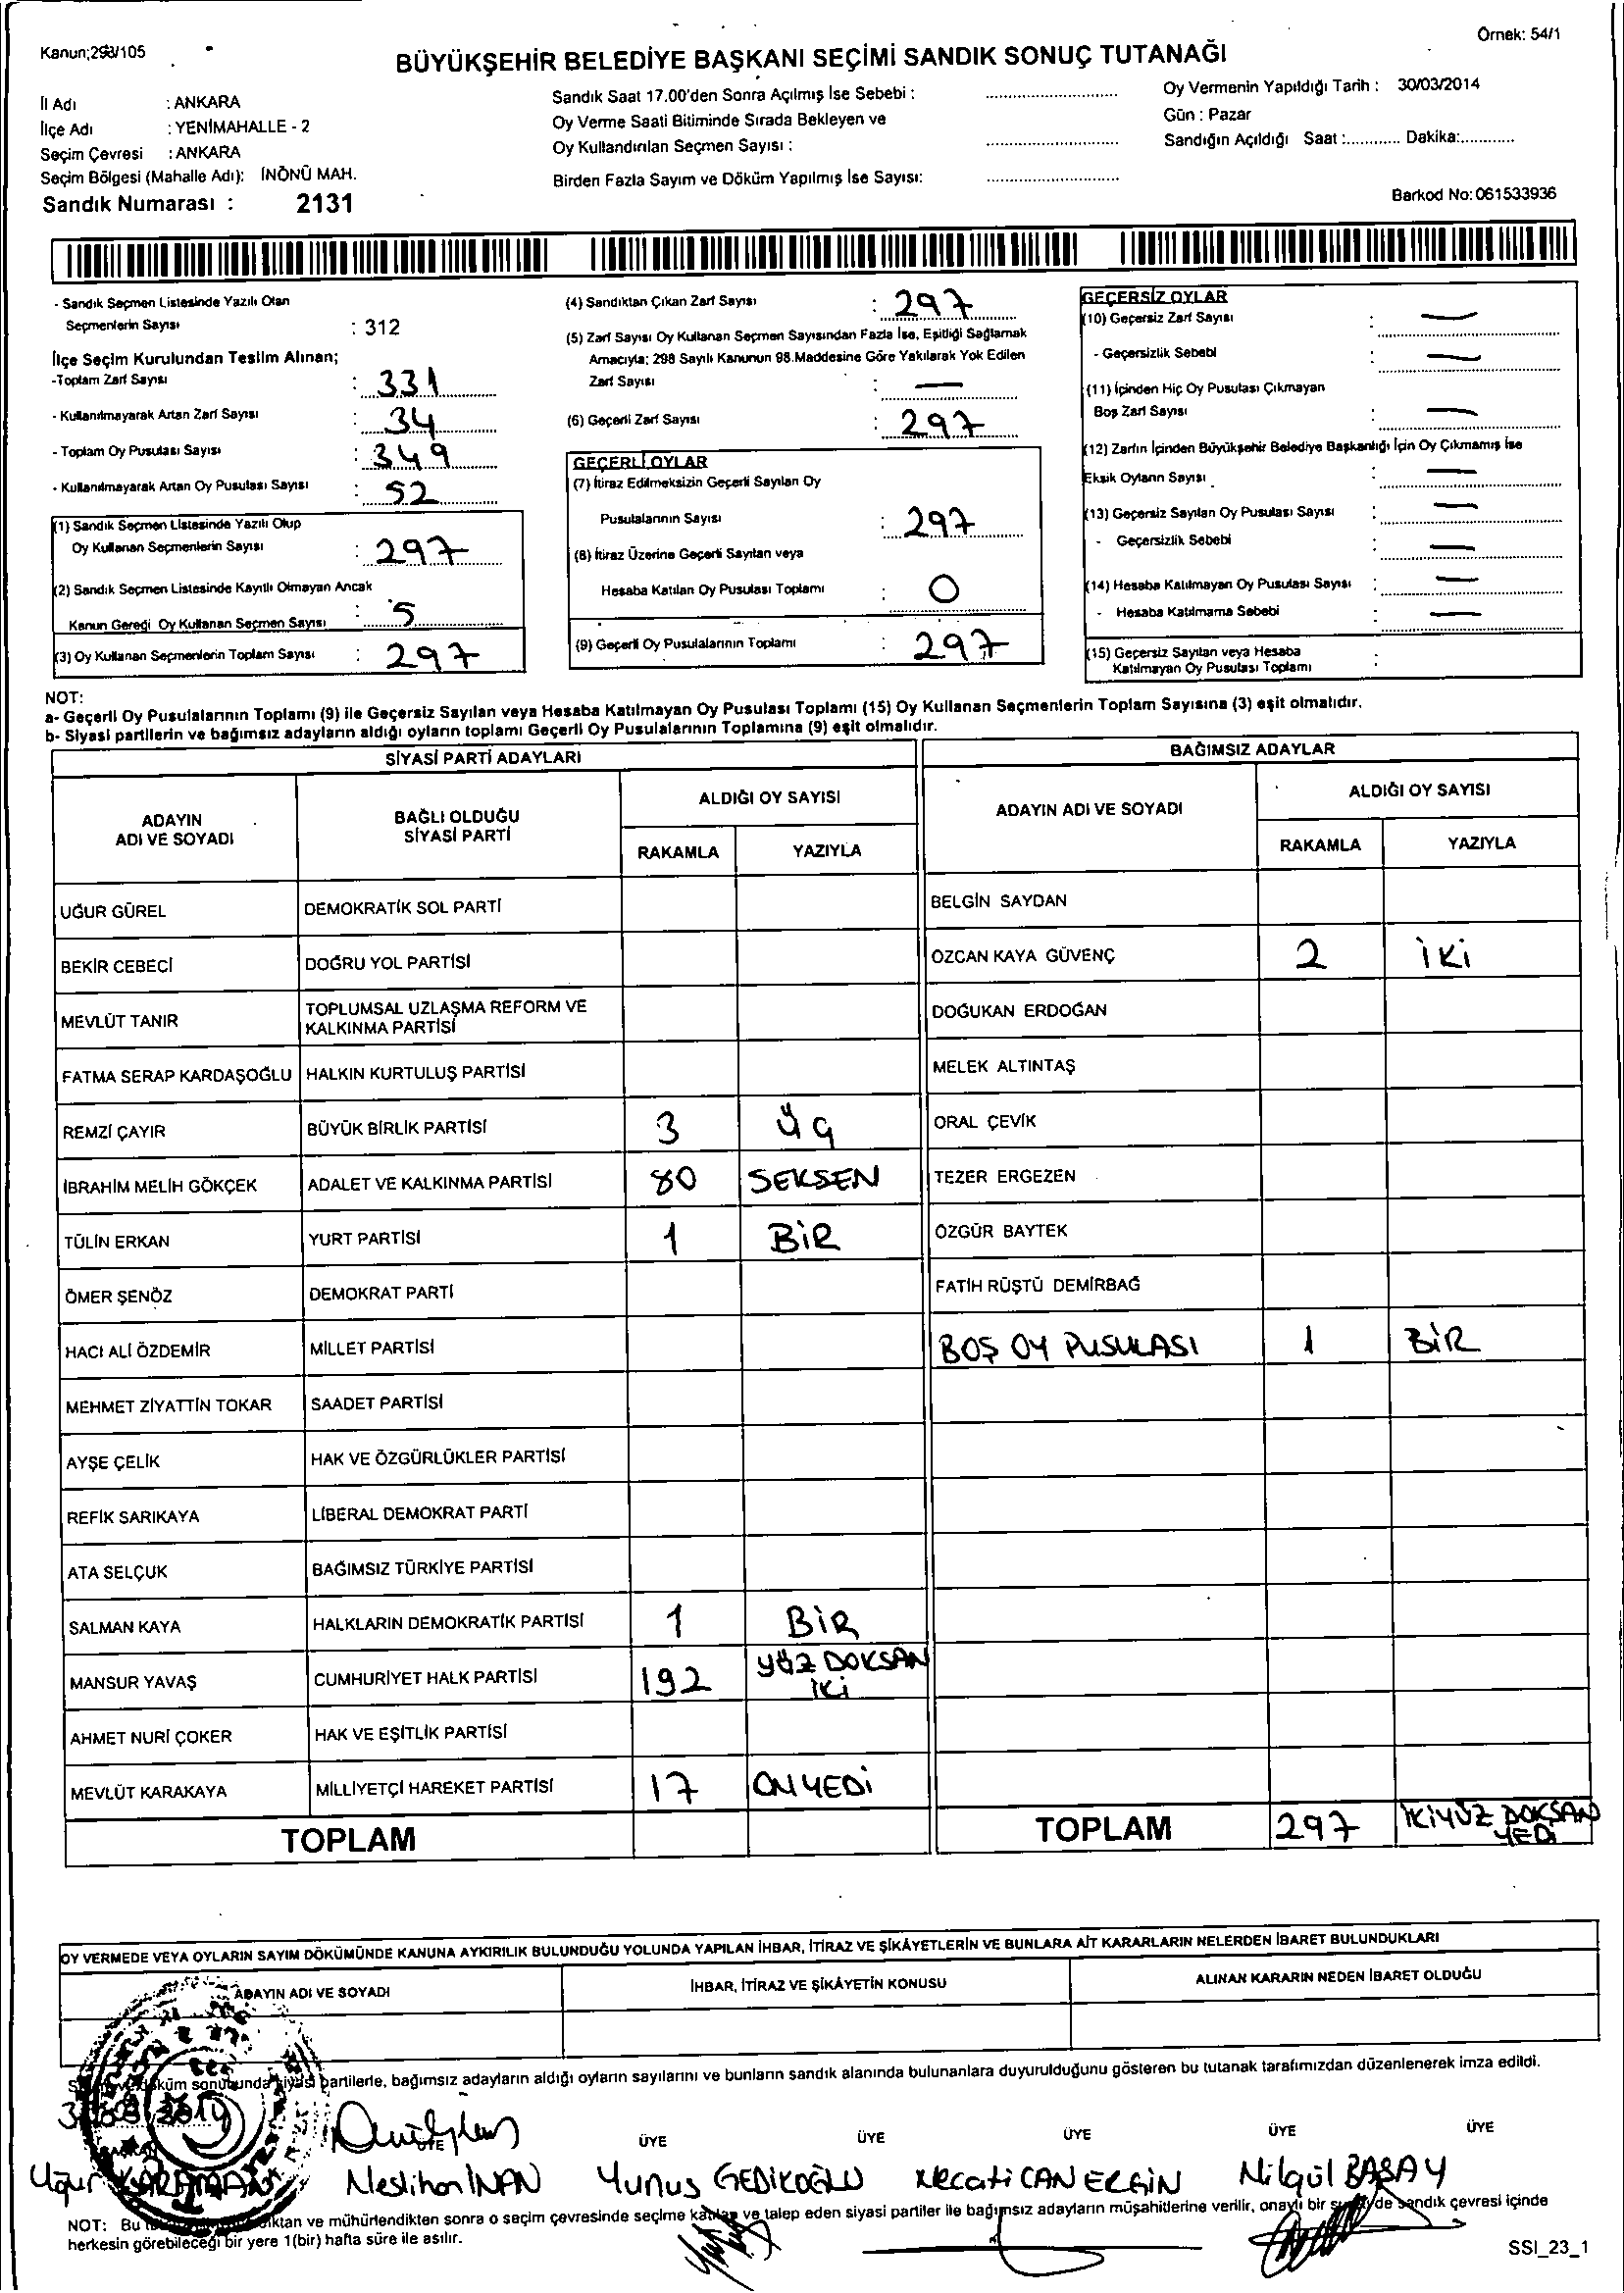 Kanun;298/105
Örnek: 54/1
BÜYÜKŞEHİR BELEDİYE BAŞKANI SEÇİMİ SANDIK SONUÇ TUTANAĞI
İl Adı : ANKARA
İlçe Adı : YENİMAHALLE - 2
Seçim Çevresi : ANKARA
Seçim Bölgesi (Mahalle Adı): İNÖNÜ MAH.
Sandık Numarası : 2131
Sandık Saat 17.00'den Sonra Açılmış İse Sebebi :
Oy Verme Saati Bitiminde Sırada Bekleyen ve
Oy Kullandırılan Seçmen Sayısı :
Birden Fazla Sayım ve Döküm Yapılmış İse Sayısı:
Oy Vermenin Yapıldığı Tarih : 30/03/2014
Gün : Pazar
Sandığın Açıldığı Saat :............ Dakika:............
Barkod No: 061533936
- Sandık Seçmen Listesinde Yazılı Olan
Seçmenlerin Sayısı : 312
İlçe Seçim Kurulundan Teslim Alınan;
-Toplam Zarf Sayısı : 331
- Kullanılmayarak Artan Zarf Sayısı : 34
- Toplam Oy Pusulası Sayısı : 349
- Kullanılmayarak Artan Oy Pusulası Sayısı : 52
(1) Sandık Seçmen Listesinde Yazılı Olup
Oy Kullanan Seçmenlerin Sayısı : 297
(2) Sandık Seçmen Listesinde Kayıtlı Olmayan Ancak
Kanun Gereği Oy Kullanan Seçmen Sayısı : 5
(3) Oy Kullanan Seçmenlerin Toplam Sayısı : 297
(4) Sandıktan Çıkan Zarf Sayısı : 297
(5) Zarf Sayısı Oy Kullanan Seçmen Sayısından Fazla İse, Eşitliği Sağlamak
Amacıyla; 298 Sayılı Kanunun 98.Maddesine Göre Yakılarak Yok Edilen
Zarf Sayısı : —
(6) Geçerli Zarf Sayısı : 297
GEÇERLİ OYLAR
(7) İtiraz Edilmeksizin Geçerli Sayılan Oy
Pusulalarının Sayısı : 297
(8) İtiraz Üzerine Geçerli Sayılan veya
Hesaba Katılan Oy Pusulası Toplamı : 0
(9) Geçerli Oy Pusulalarının Toplamı : 297
GEÇERSİZ OYLAR
(10) Geçersiz Zarf Sayısı : —
- Geçersizlik Sebebi : —
(11) İçinden Hiç Oy Pusulası Çıkmayan
Boş Zarf Sayısı : —
(12) Zarfın İçinden Büyükşehir Belediye Başkanlığı İçin Oy Çıkmamış İse
Eksik Oyların Sayısı : —
(13) Geçersiz Sayılan Oy Pusulası Sayısı : —
- Geçersizlik Sebebi : —
(14) Hesaba Katılmayan Oy Pusulası Sayısı : —
- Hesaba Katılmama Sebebi : —
(15) Geçersiz Sayılan veya Hesaba
Katılmayan Oy Pusulası Toplamı :
NOT:
a- Geçerli Oy Pusulalarının Toplamı (9) ile Geçersiz Sayılan veya Hesaba Katılmayan Oy Pusulası Toplamı (15) Oy Kullanan Seçmenlerin Toplam Sayısına (3) eşit olmalıdır.
b- Siyasi partilerin ve bağımsız adayların aldığı oyların toplamı Geçerli Oy Pusulalarının Toplamına (9) eşit olmalıdır.
SİYASİ PARTİ ADAYLARI
ADAYIN ADI VE SOYADI
BAĞLI OLDUĞU SİYASİ PARTİ
ALDIĞI OY SAYISI
RAKAMLA YAZIYLA
UĞUR GÜREL DEMOKRATİK SOL PARTİ
BEKİR CEBECİ DOĞRU YOL PARTİSİ
MEVLÜT TANIR TOPLUMSAL UZLAŞMA REFORM VE KALKINMA PARTİSİ
FATMA SERAP KARDAŞOĞLU HALKIN KURTULUŞ PARTİSİ
REMZİ ÇAYIR BÜYÜK BİRLİK PARTİSİ 3 ÜÇ
İBRAHİM MELİH GÖKÇEK ADALET VE KALKINMA PARTİSİ 80 SEKSEN
TÜLİN ERKAN YURT PARTİSİ 1 BİR
ÖMER ŞENÖZ DEMOKRAT PARTİ
HACI ALİ ÖZDEMİR MİLLET PARTİSİ
MEHMET ZİYATTİN TOKAR SAADET PARTİSİ
AYŞE ÇELİK HAK VE ÖZGÜRLÜKLER PARTİSİ
REFİK SARIKAYA LİBERAL DEMOKRAT PARTİ
ATA SELÇUK BAĞIMSIZ TÜRKİYE PARTİSİ
SALMAN KAYA HALKLARIN DEMOKRATİK PARTİSİ 1 BİR
MANSUR YAVAŞ CUMHURİYET HALK PARTİSİ 192 YÜZ DOKSAN İKİ
AHMET NURİ ÇOKER HAK VE EŞİTLİK PARTİSİ
MEVLÜT KARAKAYA MİLLİYETÇİ HAREKET PARTİSİ 17 ON YEDİ
TOPLAM
BAĞIMSIZ ADAYLAR
ADAYIN ADI VE SOYADI
ALDIĞI OY SAYISI
RAKAMLA YAZIYLA
BELGİN SAYDAN
ÖZCAN KAYA GÜVENÇ 2 İKİ
DOĞUKAN ERDOĞAN
MELEK ALTINTAŞ
ORAL ÇEVİK
TEZER ERGEZEN
ÖZGÜR BAYTEK
FATİH RÜŞTÜ DEMİRBAĞ
BOŞ OY PUSULASI 1 BİR
TOPLAM 297 İKİYÜZ DOKSAN YEDİ
OY VERMEDE VEYA OYLARIN SAYIM DÖKÜMÜNDE KANUNA AYKIRILIK BULUNDUĞU YOLUNDA YAPILAN İHBAR, İTİRAZ VE ŞİKÂYETLERİN VE BUNLARA AİT KARARLARIN NELERDEN İBARET BULUNDUKLARI
ADAYIN ADI VE SOYADI
İHBAR, İTİRAZ VE ŞİKÂYETİN KONUSU
ALINAN KARARIN NEDEN İBARET OLDUĞU
sonucunda siyasi partilerle, bağımsız adayların aldığı oyların sayılarını ve bunların sandık alanında bulunanlara duyurulduğunu gösteren bu tutanak tarafımızdan düzenlenerek imza edildi.
ÜYE ÜYE ÜYE ÜYE ÜYE
Uğur KARAMAN Neslihan İNAN Yunus GEDİKOĞLU Necati CAN ERGİN Nilgül BABAY
NOT: Bu ve mühürlendikten sonra o seçim çevresinde seçime katılan ve talep eden siyasi partiler ile bağımsız adayların müşahitlerine verilir, onaylı bir sureti de sandık çevresi içinde
herkesin görebileceği bir yere 1(bir) hafta süre ile asılır.
SSI_23_1